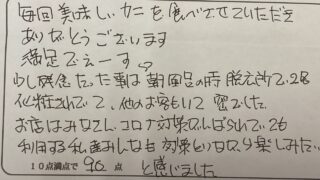 毎回美味しいカニを食べさせていただき
ありがとうございます
満足でぇーす♡
少し残念だった事は朝風呂の時脱衣所で2名
化粧されてて、他のお客もいて 密でした
お店はみなさんコロナ対策がんばられていても
利用する私達みんなも対策といながら楽しみたい
10点満点で 90 点 と感じました